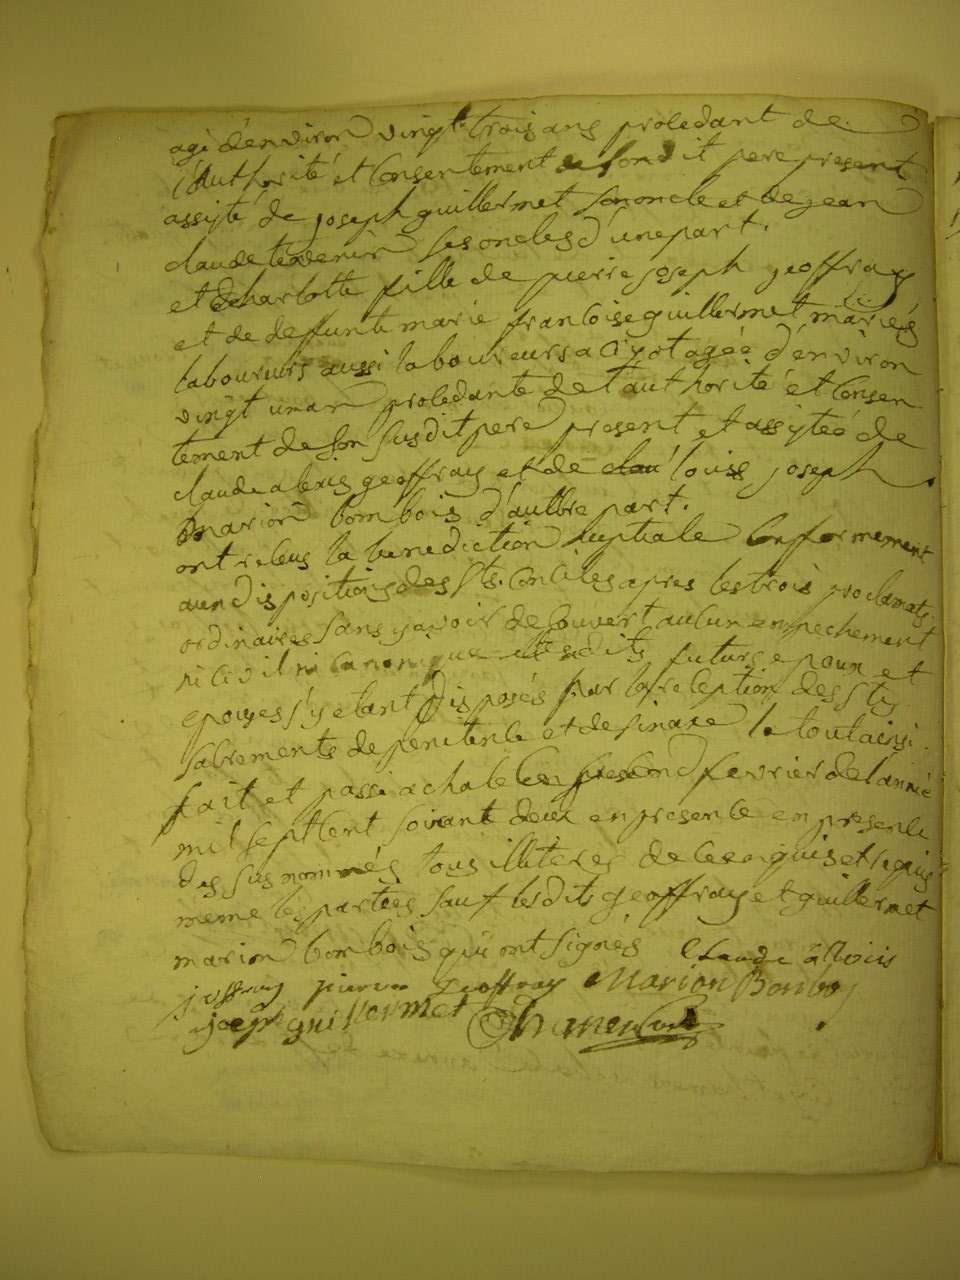 agé d'environ vingt trois ans procedant de
l'Authorité et Consentement de son dit pere present
assisté de joseph guillermet son oncle et de jean
claude ses oncles d'une part.
et charlotte fille de pierre joseph geoffray
et de deffunte marie francoise guillermet mariés
laboureurs aussi laboureurs a agée d'environ
vingt un an procedante de l'authorité et Consen
tement de son susdit pere present et assistée de
claude alexis geoffray et de louis joseph
marion bombois d'aultre part.
ont recus la benediction nuptiale Conformement
aux dispositions des Sts. Conciles apres les trois proclamats.
ordinaires sans y avoir decouvert aucun empechement
ni civil ni canonique lesdits futurs epoux et
epouses s'y etant disposés par la reception des Sts
sacrements de penitence et de sinaxe le tout ainsi
fait et passé a fevrier de l'année
mil sept cent soixante deux en presence en presence
des susnommés tous illiteres de ce enquis et requis
meme les parties sauf lesdits geoffray et guillermet
marion bombois qui ont signés Claude
joffray pierre Geoffray Marion Bonboy
joseph guillermet